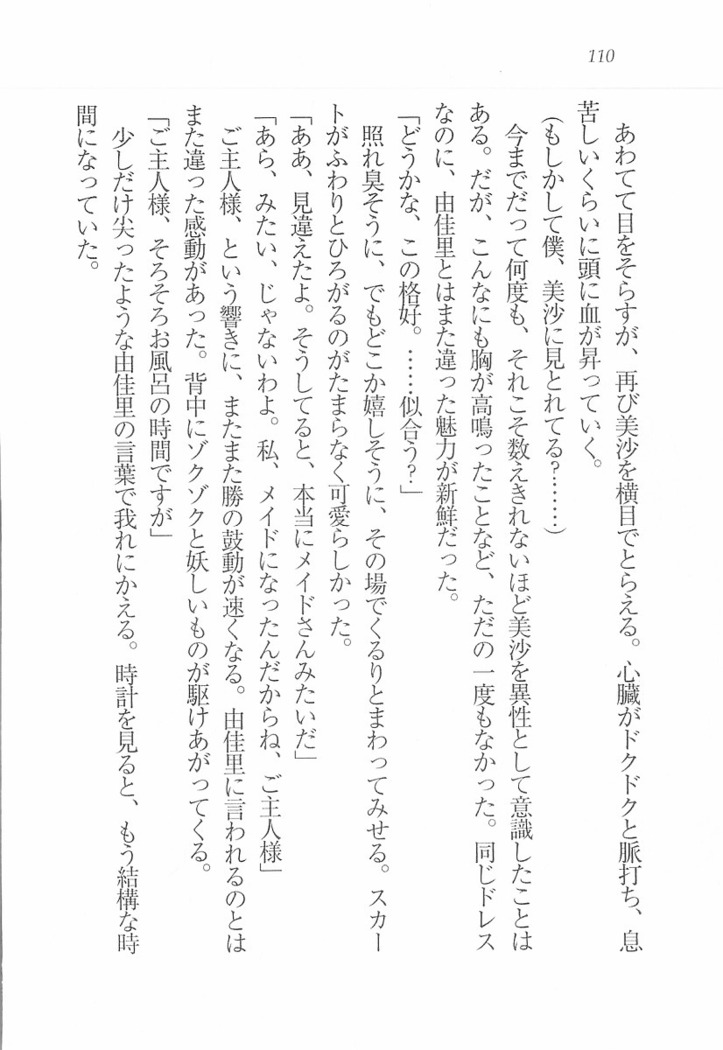 110
あわてて目をそらすが、再び美沙を横目でとらえる。心臓がドクドクと脈打ち、息
苦しいくらいに頭に血が昇っていく。
(もしかして僕、美沙に見とれてる?……)
今までだって何度も、それこそ数えきれないほど美沙を異性として意識したことは
ある。だが、こんなにも胸が高鳴ったことなど、ただの一度もなかった。同じドレス
なのに、由佳里とはまた違った魅力が新鮮だった。
「どうかな、この格好。……似合う?」
照れ臭そうに、でもどこか嬉しそうに、その場でくるりとまわってみせる。スカー
トがふわりとひろがるのがたまらなく可愛らしかった。
「ああ、見違えたよ。そうしてると、本当にメイドさんみたいだ」
「あら、みたい、じゃないわよ。私、メイドになったんだからね、ご主人様」
ご主人様、という響きに、またまた勝の鼓動が速くなる。由佳里に言われるのとは
また違った感動があった。背中にゾクゾクと妖しいものが駆けあがってくる。
「ご主人様、そろそろお風呂の時間ですが」
少しだけ尖ったような由佳里の言葉で我れにかえる。時計を見ると、もう結構な時
間になっていた。